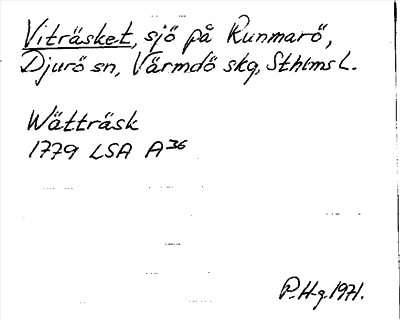 Viträsket, sjö på Runmarö,
Djurö sn, Värmdö skg, Sthlms L.
Wätträsk
1779 LSA A36
P.H-g.1971.